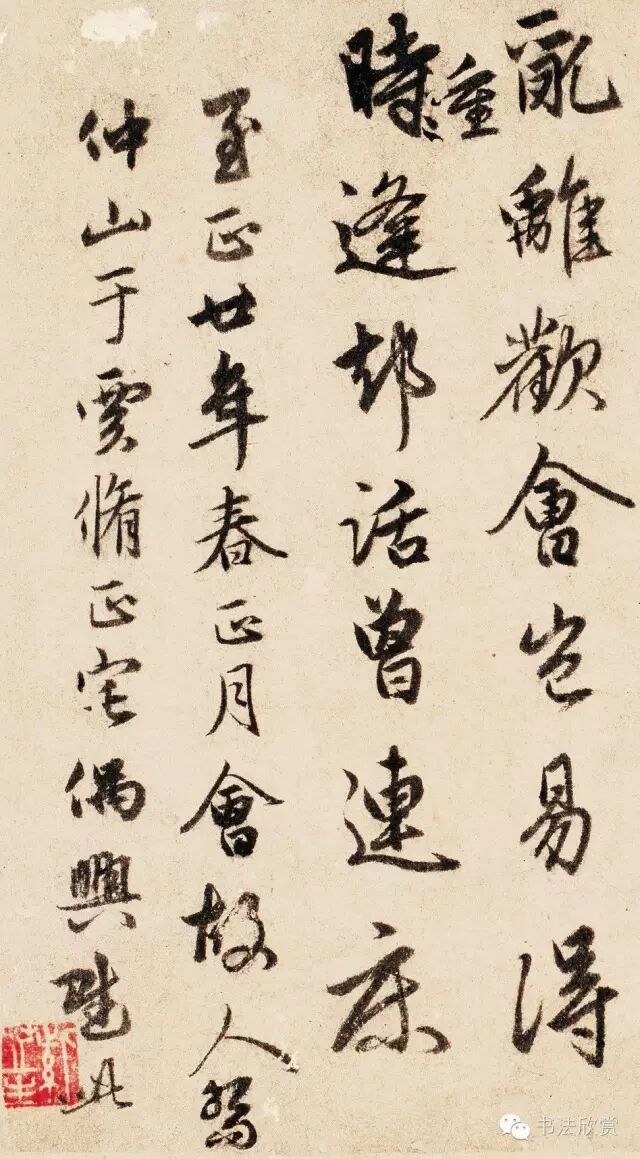 亂離歡會豈易得
時重逢却話曾連床
至正廿年春正月會故人
仲山于賈脩正宅偶興賦此
书法欣赏